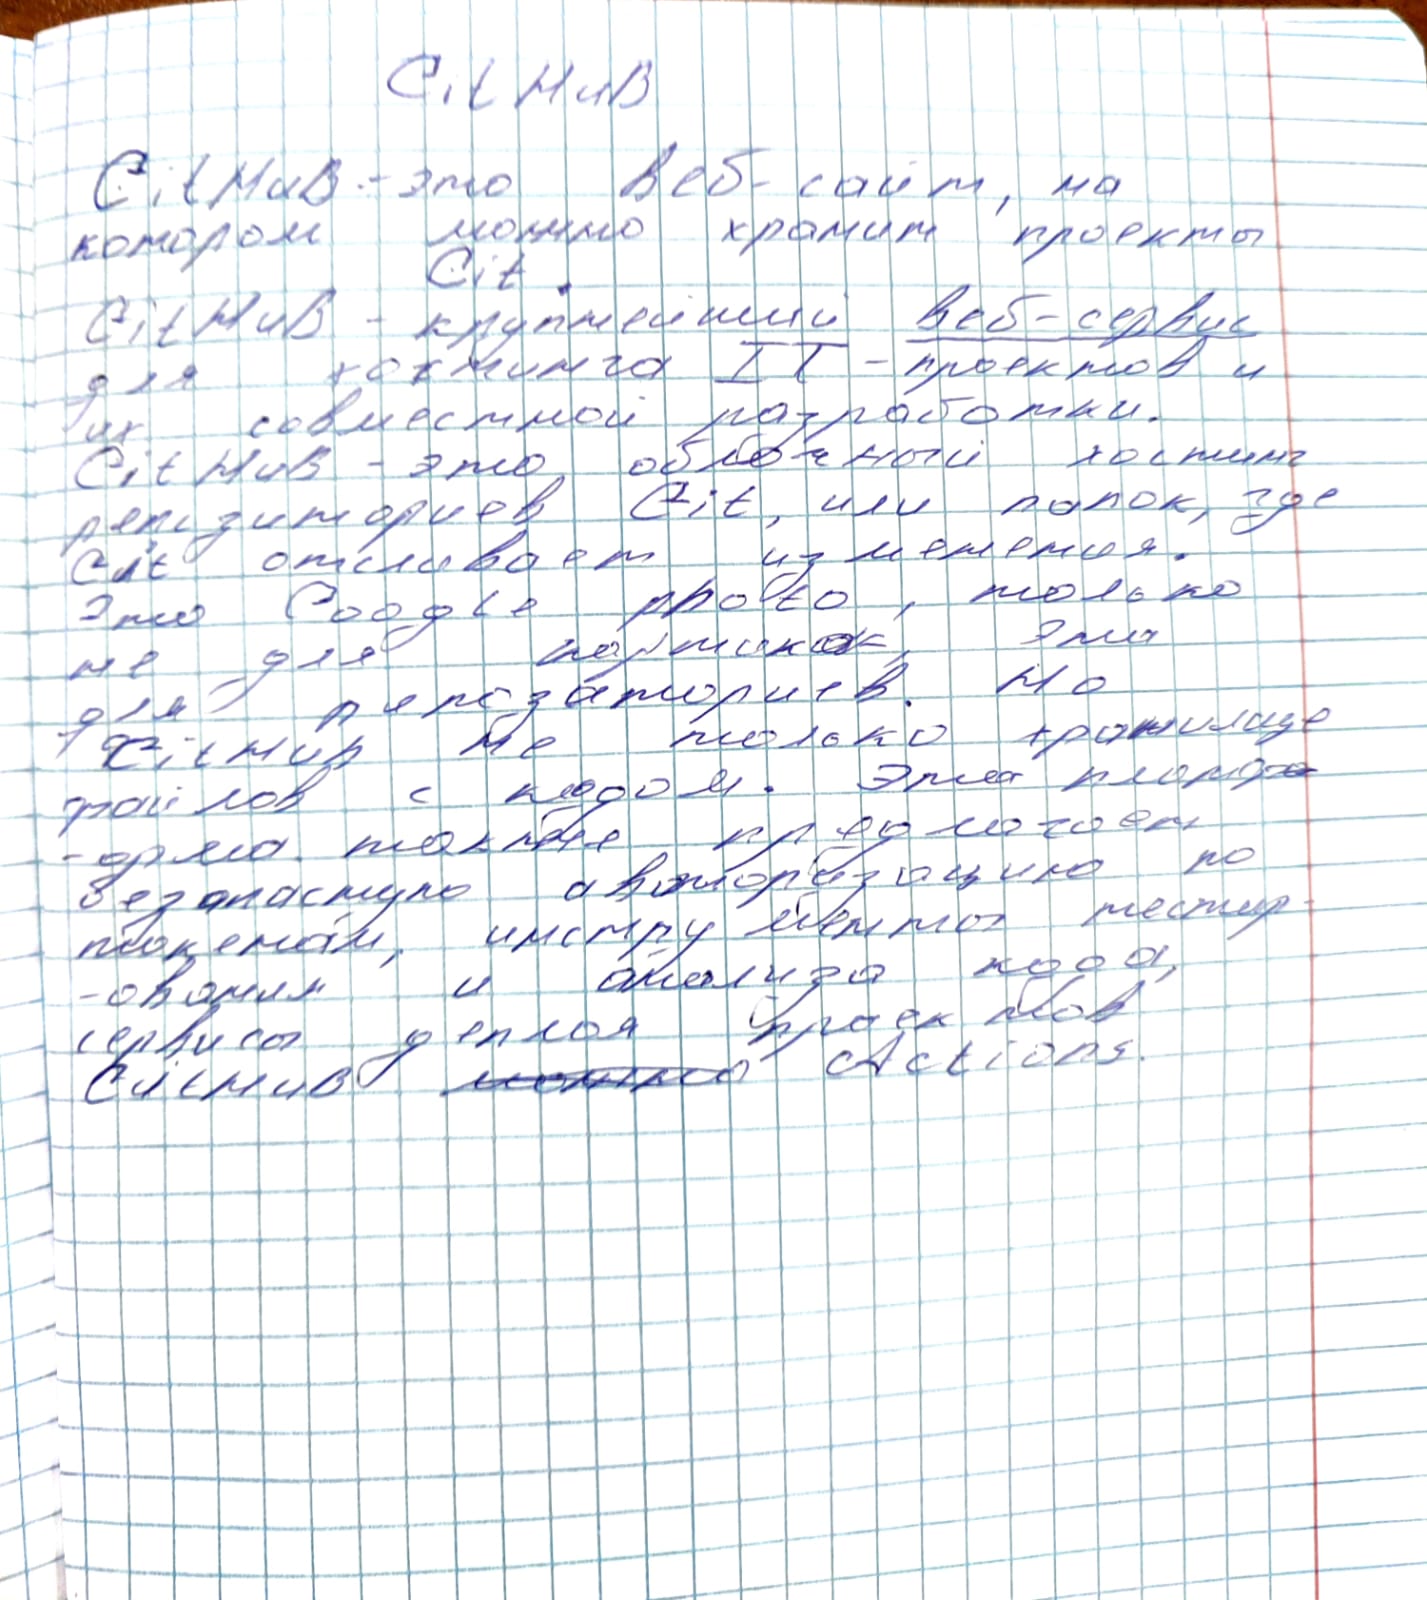 CitHuB
CitHuB - это веб-сайт, на
котором можно хранит проекты
Cit.
CitHuB - крупнейший веб-сервис
для хостинга IT - проектов и
их совместной разработки.
CitHuB - это облачный хостинг
репизиториев Cit, или папок, где
Cit отсливает изменения.
Это Coogle photo, только
не для картинок, Это
для репозаториев. Но
CitHub не только хранилище
файлов с кодом. Эта платф
-орма также предлагает
безопастую авторизацию по
токенам, инструменты тестир-
-ования и анализа кода,
сервисы деплоя проектов
CitHuB Actions.